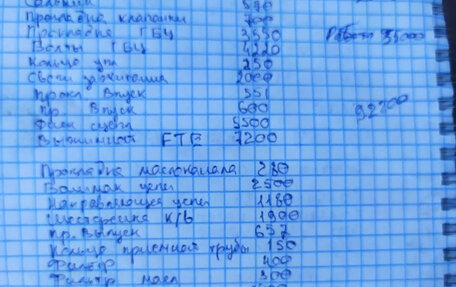 Сальники 590
Прокладка клапанки 700
Прокладка ГБЦ 3550
Болты ГБЦ 4220 Работа 35000
Кольцо упл 250
Свечи зажигания 2000
Прокл Впуск 551
пр. Впуск 600 92200
Фикс сцепл 5500
Выжимной FTE 7200
Прокладка маслоканала 280
Башмак цепи 2500
Направляющая цепи 1180
Шестеренка к/в 1900
пр. Выпуск 657
Кольцо приемной трубы 150
Фильтр 400
Фильтр масл 300